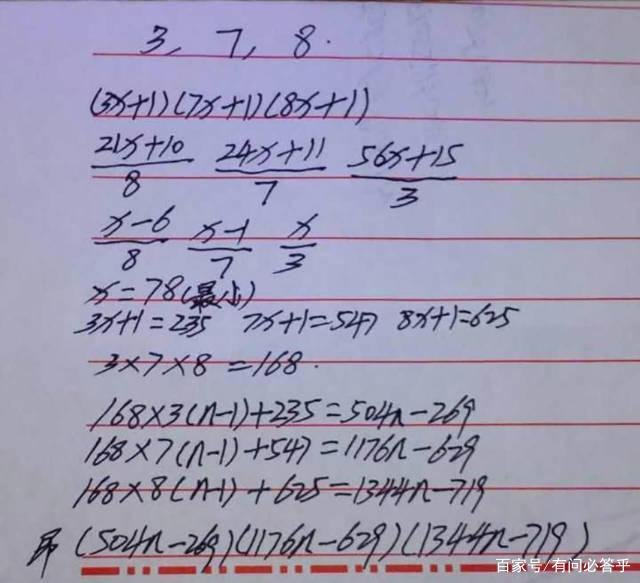 3, 7, 8.
(3x+1)(7x+1)(8x+1)
21x+10/8 24x+11/7 56x+15/3
x-6/8 x-1/7 x/3
x=78(最小)
3x+1=235 7x+1=547 8x+1=625
3×7×8=168.
168×3(n-1)+235=504n-269
168×7(n-1)+547=1176n-629
168×8(n-1)+625=1344n-719
即(504n-269)(1176n-629)(1344n-719)
百家号/有问必答乎